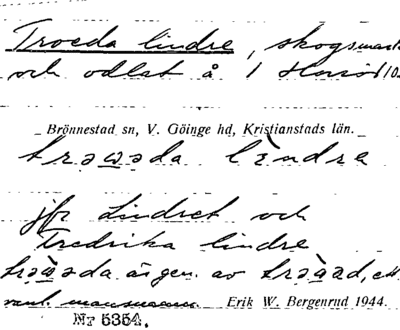 Troeda lindre, skogsmark
och odlat å 1 Horröd 10
Brönnestad sn, V. Göinge hd, Kristianstads län.
trəwəda lìndrə
jfr Lindret och
Fredrika lindre
är gen. av
Erik W. Bergenrud 1944.
Nr 5354.